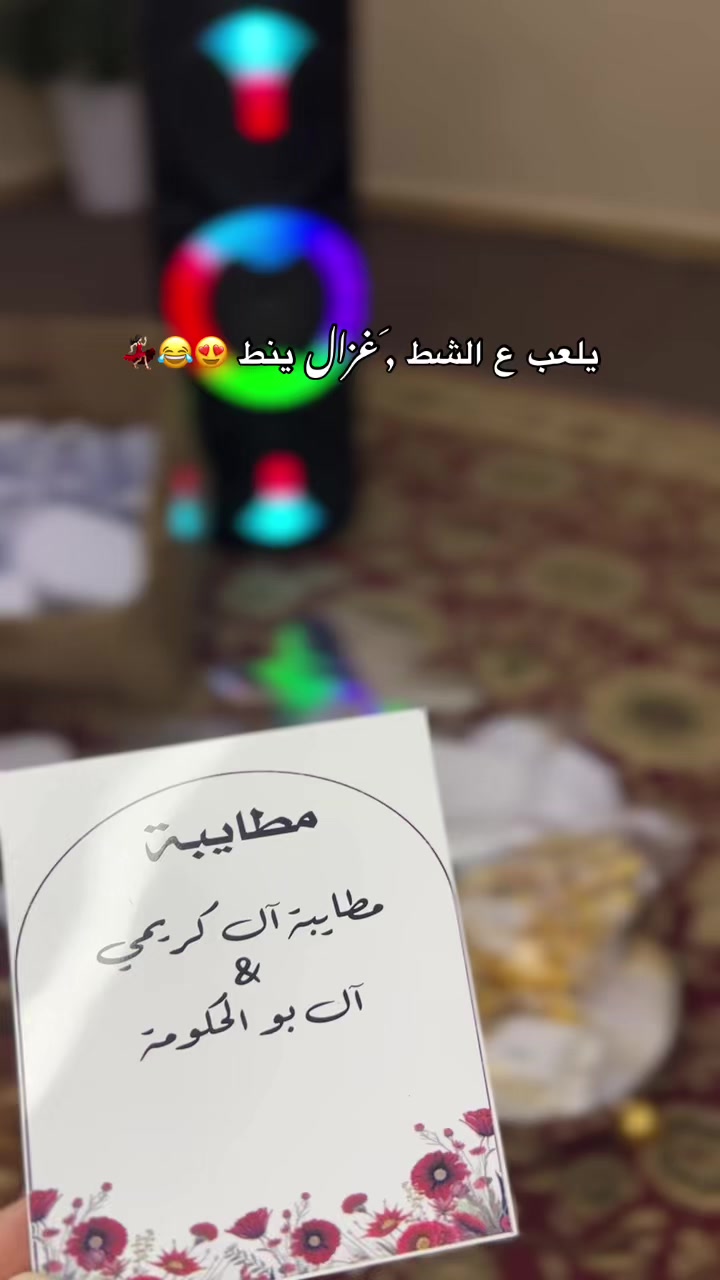 يلعب ع الشط , َغزال ينط 😍😂💃🏻
مطايبة
مطايبة آل كريمي
&
آل بو الحكومة